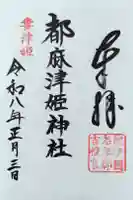 奉拝
都麻津姫神社
妻津姫
令和八年正月三日